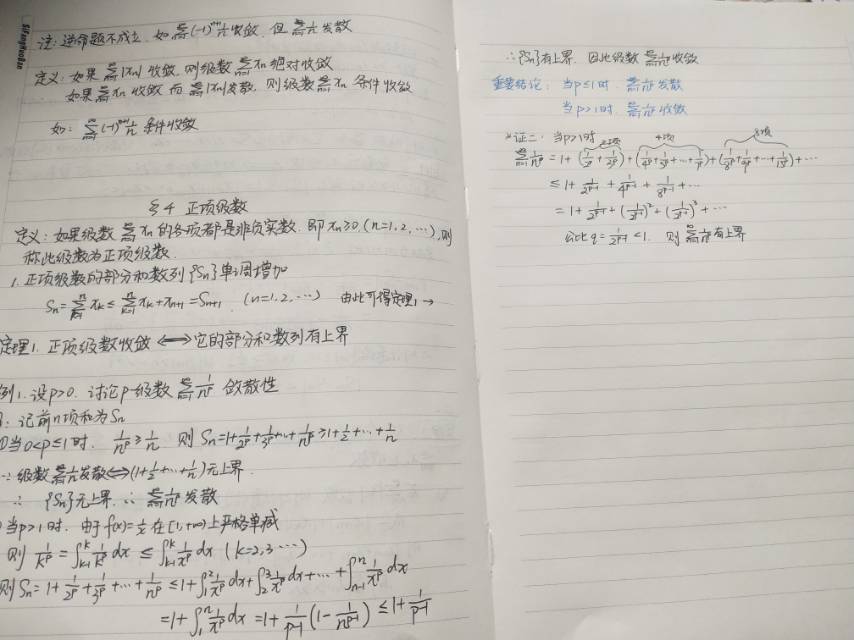 注：逆命题不成立，如 ∑(-1)^{n+1} 1/n 收敛，但 ∑ 1/n 发散
定义：如果 ∑|xn| 收敛，则级数 ∑xn 绝对收敛
如果 ∑xn 收敛而 ∑|xn| 发散，则级数 ∑xn 条件收敛
如：∑(-1)^{n+1} 1/n 条件收敛
§4 正项级数
定义：如果级数 ∑xn 的各项都是非负实数，即 xn≥0，(n=1,2,…)，则
称此级数为正项级数．
1. 正项级数的部分和数列{Sn}单调增加
Sn=∑xk ≤ ∑xk+xn+1=Sn+1 (n=1,2,…) 由此可得定理1 →
定理1. 正项级数收敛 ⟺ 它的部分和数列有上界
例1. 设p>0. 讨论p-级数 ∑ 1/n^p 敛散性
：记前n项和为Sn
①当0<p≤1时． 1/n^p ≥ 1/n 则 Sn=1+1/2^p+1/3^p+…+1/n^p ≥1+1/2+…+1/n
∵级数 ∑ 1/n 发散⟺(1+1/2+…+1/n)无上界．
∴ {Sn}无上界．∴ ∑ 1/n^p 发散
当p>1时．由于f(x)=1/x^p 在[1,+∞)上严格单减
则 1/k^p = ∫_{k-1}^k 1/k^p dx ≤ ∫_{k-1}^k 1/x^p dx (k=2,3…)
则Sn=1+1/2^p+1/3^p+…+1/n^p ≤1+∫_1^2 1/x^p dx+∫_2^3 1/x^p dx+…+∫_{n-1}^n 1/x^p dx
=1+∫_1^n 1/x^p dx=1+1/(p-1) (1-1/n^{p-1}) ≤1+1/(p-1)
∴{Sn}有上界．因此级数 ∑ 1/n^p 收敛
重要结论： 当p≤1时．∑ 1/n^p 发散
当p>1时．∑ 1/n^p 收敛
*证二．当p>1时
2项 4项 8项
∑ 1/n^p =1+(1/2^p+1/3^p)+(1/4^p+1/5^p+…+1/7^p)+(1/8^p+1/9^p+…+1/15^p)+…
≤1+1/2^{p-1}+1/4^{p-1}+1/8^{p-1}+…
=1+1/2^{p-1}+(1/2^{p-1})^2+(1/2^{p-1})^3+…
公比q=1/2^{p-1}<1． 则 ∑ 1/n^p 有上界